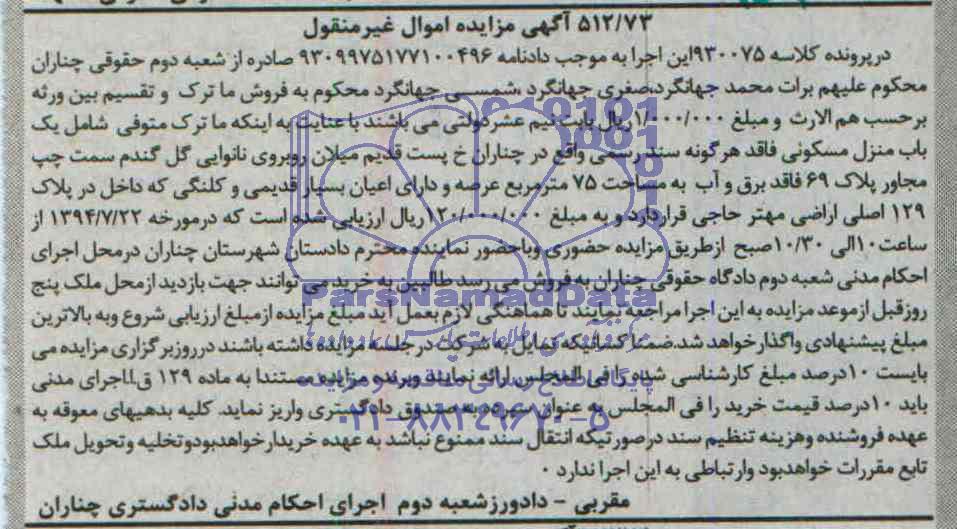 ۵۱۲/۷۳ آگهی مزایده اموال غیرمنقول
درپرونده کلاسه ۹۳۰۰۷۵این اجرا به موجب دادنامه ۹۳۰۹۹۷۵۱۷۷۱۰۰۴۹۶ صادره از شعبه دوم حقوقی چناران
محکوم علیهم برات محمد جهانگرد،صغری جهانگرد ،شمسی جهانگرد محکوم به فروش ما ترک و تقسیم بین ورثه
برحسب هم الارث و مبلغ ۱/۰۰۰/۰۰۰ریال بابت نیم عشردولتی می باشند با عنایت به اینکه ما ترک متوفی شامل یک
باب منزل مسکونی فاقد هرگونه سند رسمی واقع در چناران خ پست قدیم میلان روبروی نانوایی گل گندم سمت چپ
مجاور پلاک ۶۹ فاقد برق و آب به مساحت ۷۵ مترمربع عرصه و دارای اعیان بسیار قدیمی و کلنگی که داخل در پلاک
۱۲۹ اصلی اراضی مهتر حاجی قراردارد و به مبلغ ۱۲۰/۰۰۰/۰۰۰ریال ارزیابی شده است که درمورخه ۱۳۹۴/۷/۲۲ از
ساعت۱۰الی ۱۰/۳۰صبح ازطریق مزایده حضوری وباحضور نماینده محترم دادستان شهرستان چناران درمحل اجرای
احکام مدنی شعبه دوم دادگاه حقوقی چناران به فروش می رسد طالبین به خرید می توانند جهت بازدید ازمحل ملک پنج
روزقبل ازموعد مزایده به این اجرا مراجعه نمایند تا هماهنگی لازم بعمل آید مبلغ مزایده ازمبلغ ارزیابی شروع وبه بالاترین
مبلغ پیشنهادی واگذارخواهد شد.ضمنا کسانیکه تمایل به شرکت در جلسه مزایده داشته باشند درروزبرگزاری مزایده می
بایست ۱۰درصد مبلغ کارشناسی شده را فی المجلس ارائه نمایند وبرنده مزایده مستندا به ماده ۱۲۹ ق.ااجرای مدنی
باید ۱۰درصد قیمت خرید را فی المجلس به عنوان سپرده به صندوق دادگستری واریز نماید. کلیه بدهیهای معوقه به
عهده فروشنده وهزینه تنظیم سند درصورتیکه انتقال سند ممنوع نباشد به عهده خریدارخواهدبودوتخلیه وتحویل ملک
تابع مقررات خواهدبود وارتباطی به این اجرا ندارد ۰
مقربی – دادورزشعبه دوم اجرای احکام مدنی دادگستری چناران
ParsNamadData
۰۲۱-۸۸۳۴۹۶۷۰-۵